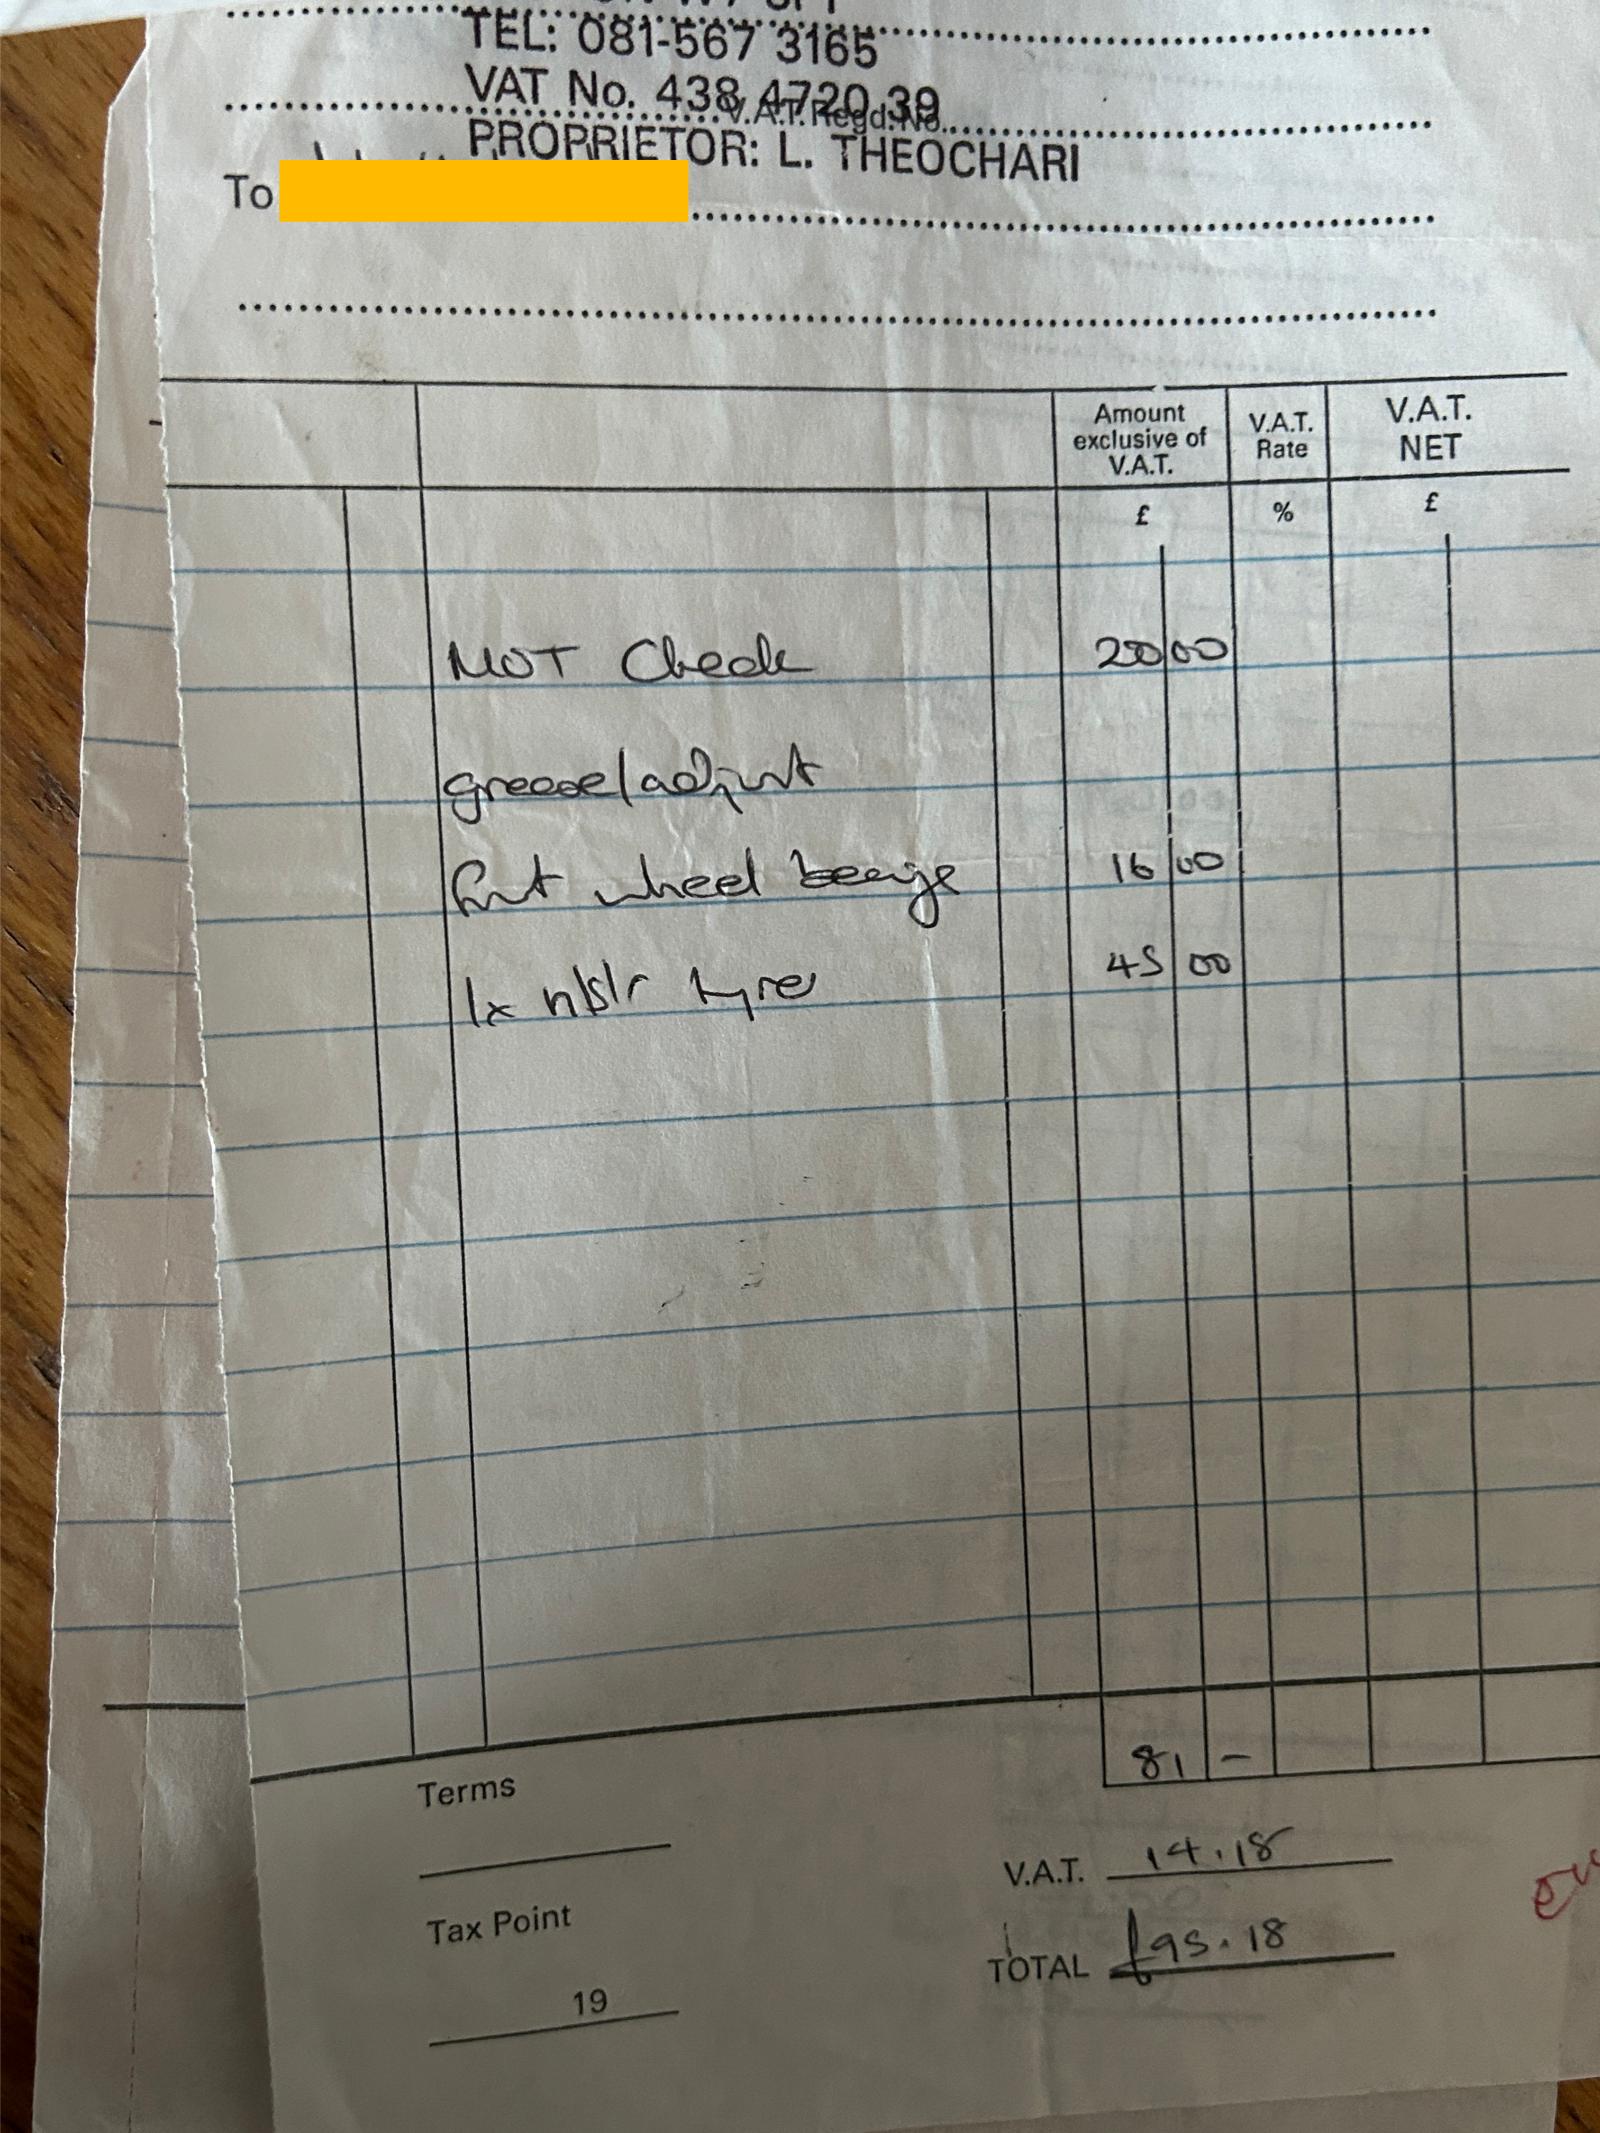 TEL: 081-567 3165
VAT No. 438 4720 39
V.A.T. Regd. No.
PROPRIETOR: L. THEOCHARI
To
Amount exclusive of V.A.T. V.A.T. Rate V.A.T. NET
£ % £
MOT Check 20 00
grease/adjust
frnt wheel 16 00
1x n/s/r tyre 45 00
81 -
Terms
V.A.T. 14.18
Tax Point
TOTAL £95.18
19